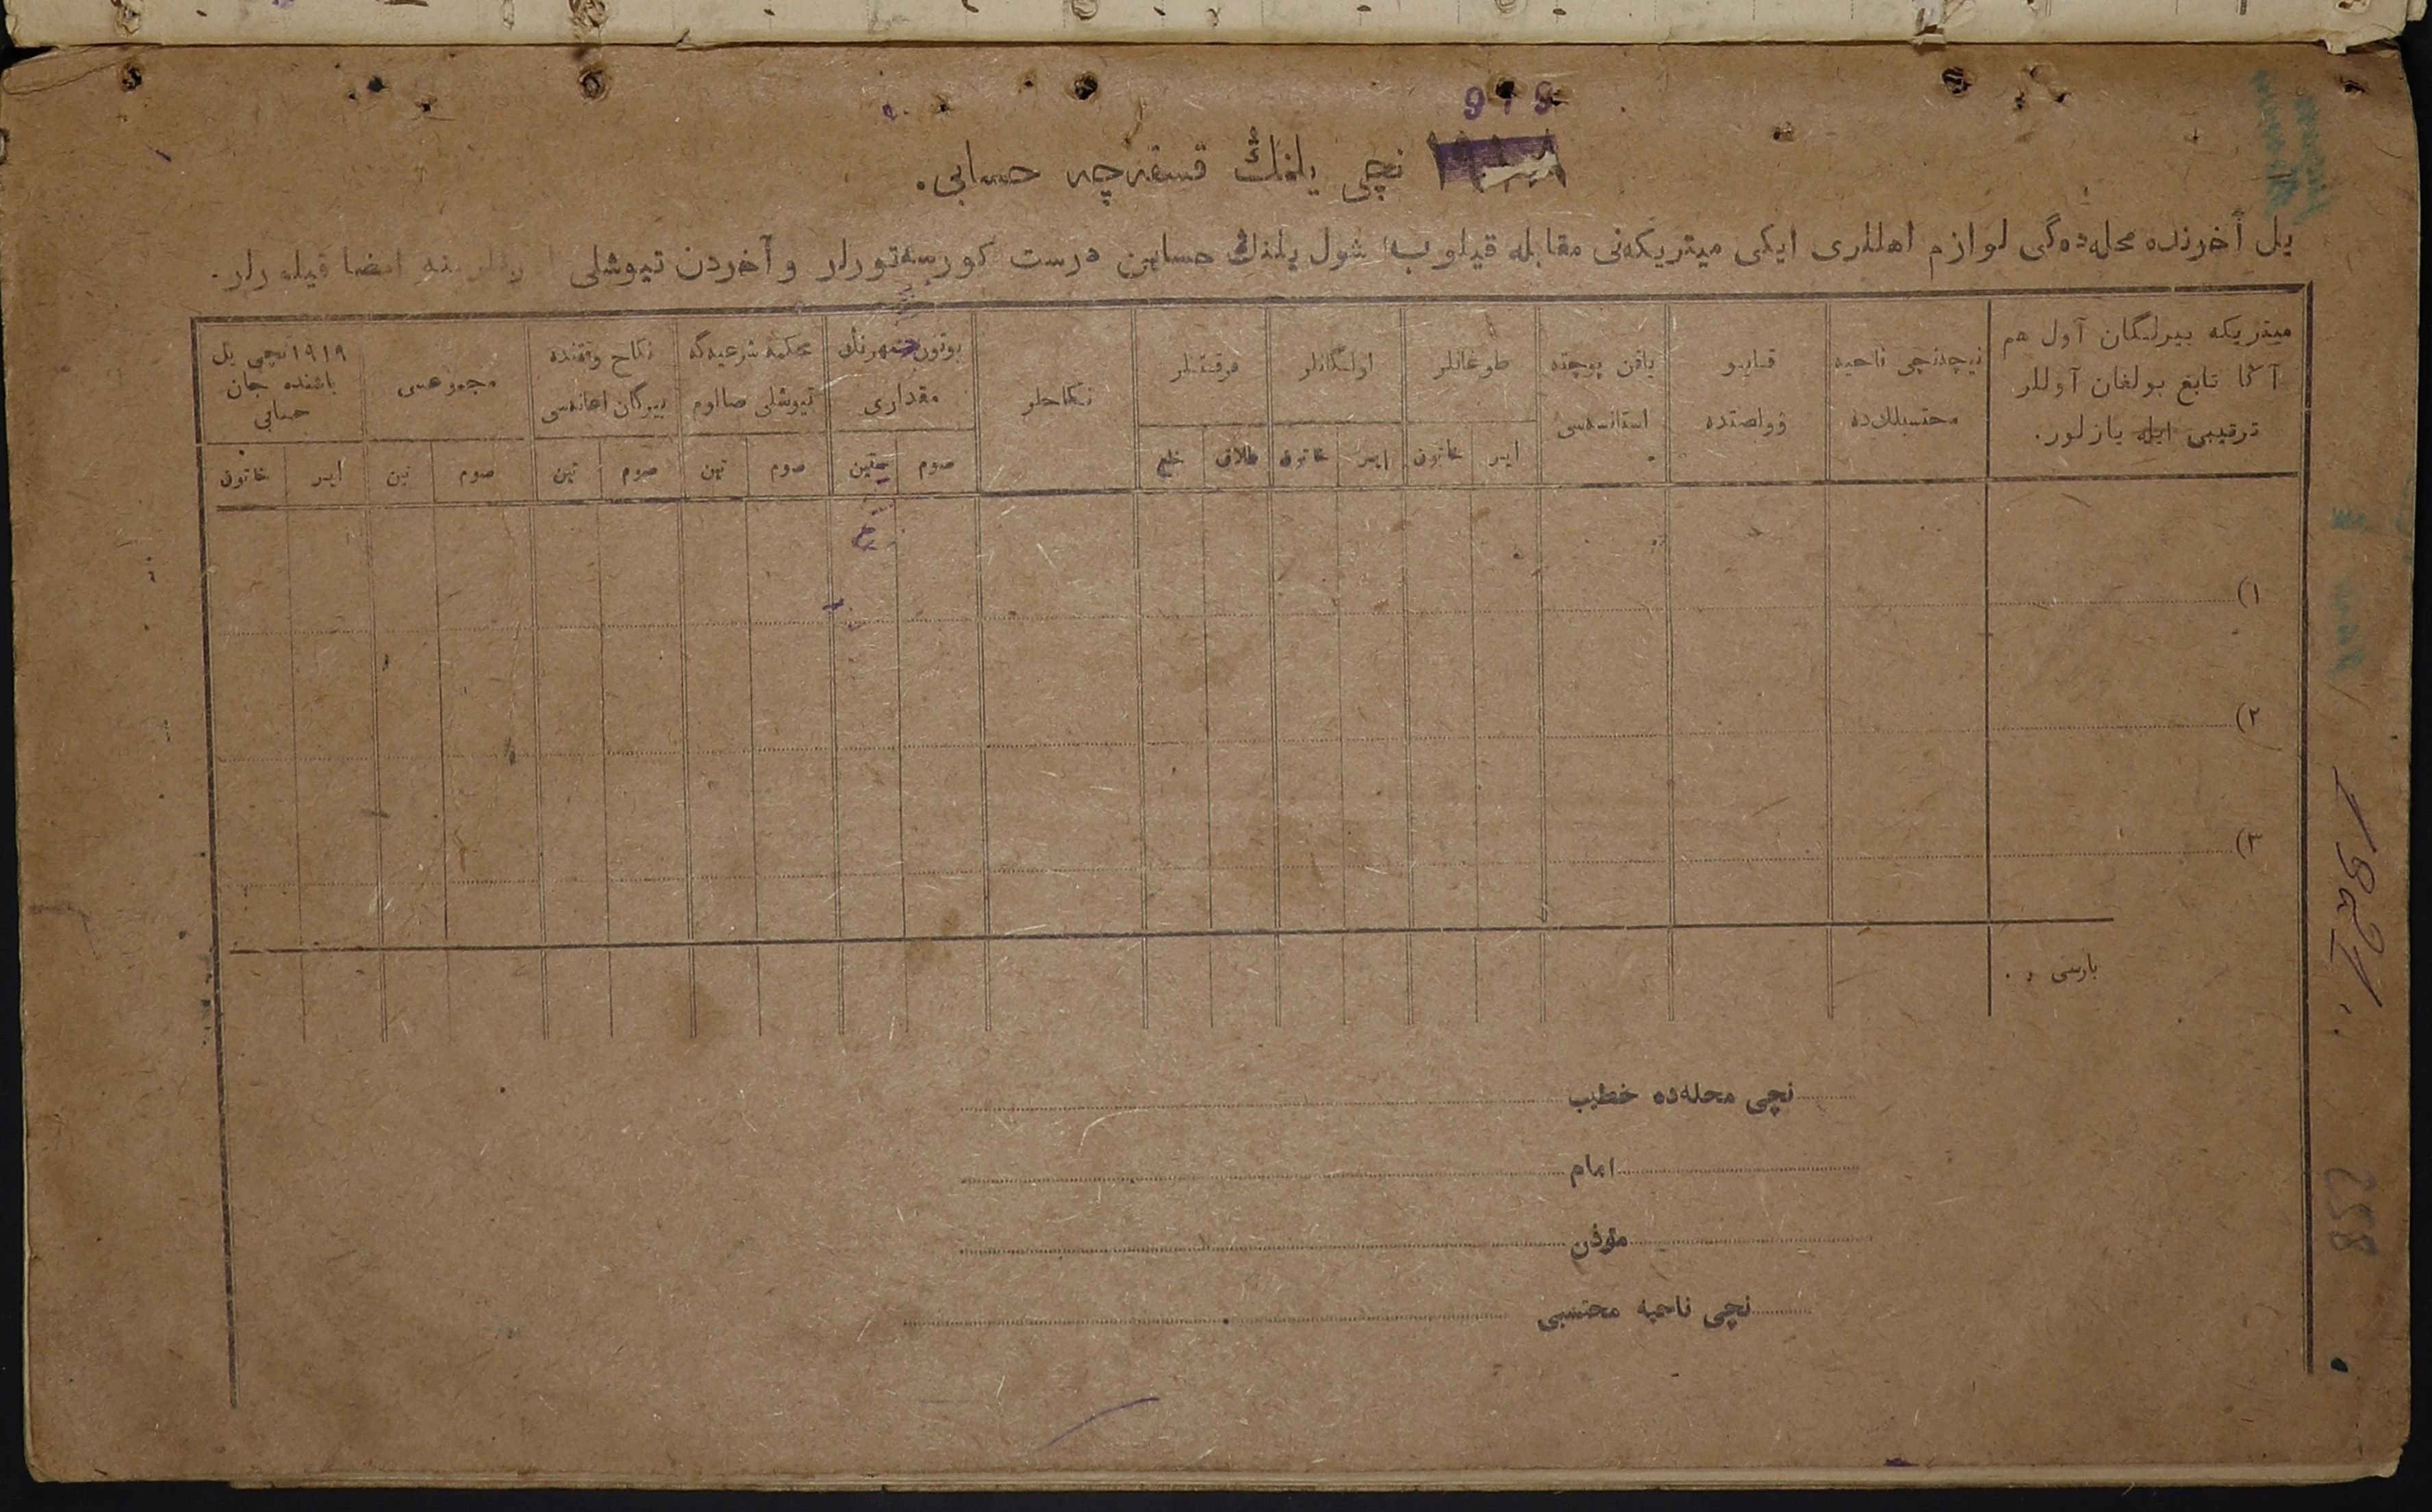 919
نچی یلنڭ قسقه‌چه حسابی.
یل آخرنده محله‌ده‌گی لوازم اهللری ایکی میتریکه‌نی مقابله قیلوب شول یلنڭ حسابین درست کورسه‌تورلر و آخردن تیوشلی امضا قیله‌رلر.
میتریکه بیرلگان آول هم آڭا تابع بولغان آوللر ترتیبی ایله یازلور.
نیچه‌نچی ناحیه محتسبلکده
قایسو وولصتده
یاقن پوچته استانسه‌سی
طوغانلر
اولگانلر
فرقتلر
نکاحلر
بوتون مهرنڭ مقداری
محکمهٔ شرعیه‌گه تیوشلی صالوم
نکاح وقتنده بیرگان اعانه‌سی
مجموعسی
۱۹۱۹ نچی یل باشنده جان حسابی
ایر خاتون ایر خاتون طلاق خلع صوم تین صوم تین صوم تین صوم تین ایر خاتون
۱)
۲)
۳)
بارسی
نچی محله‌ده خطیب
امام
مؤذن
نچی ناحیه محتسبی